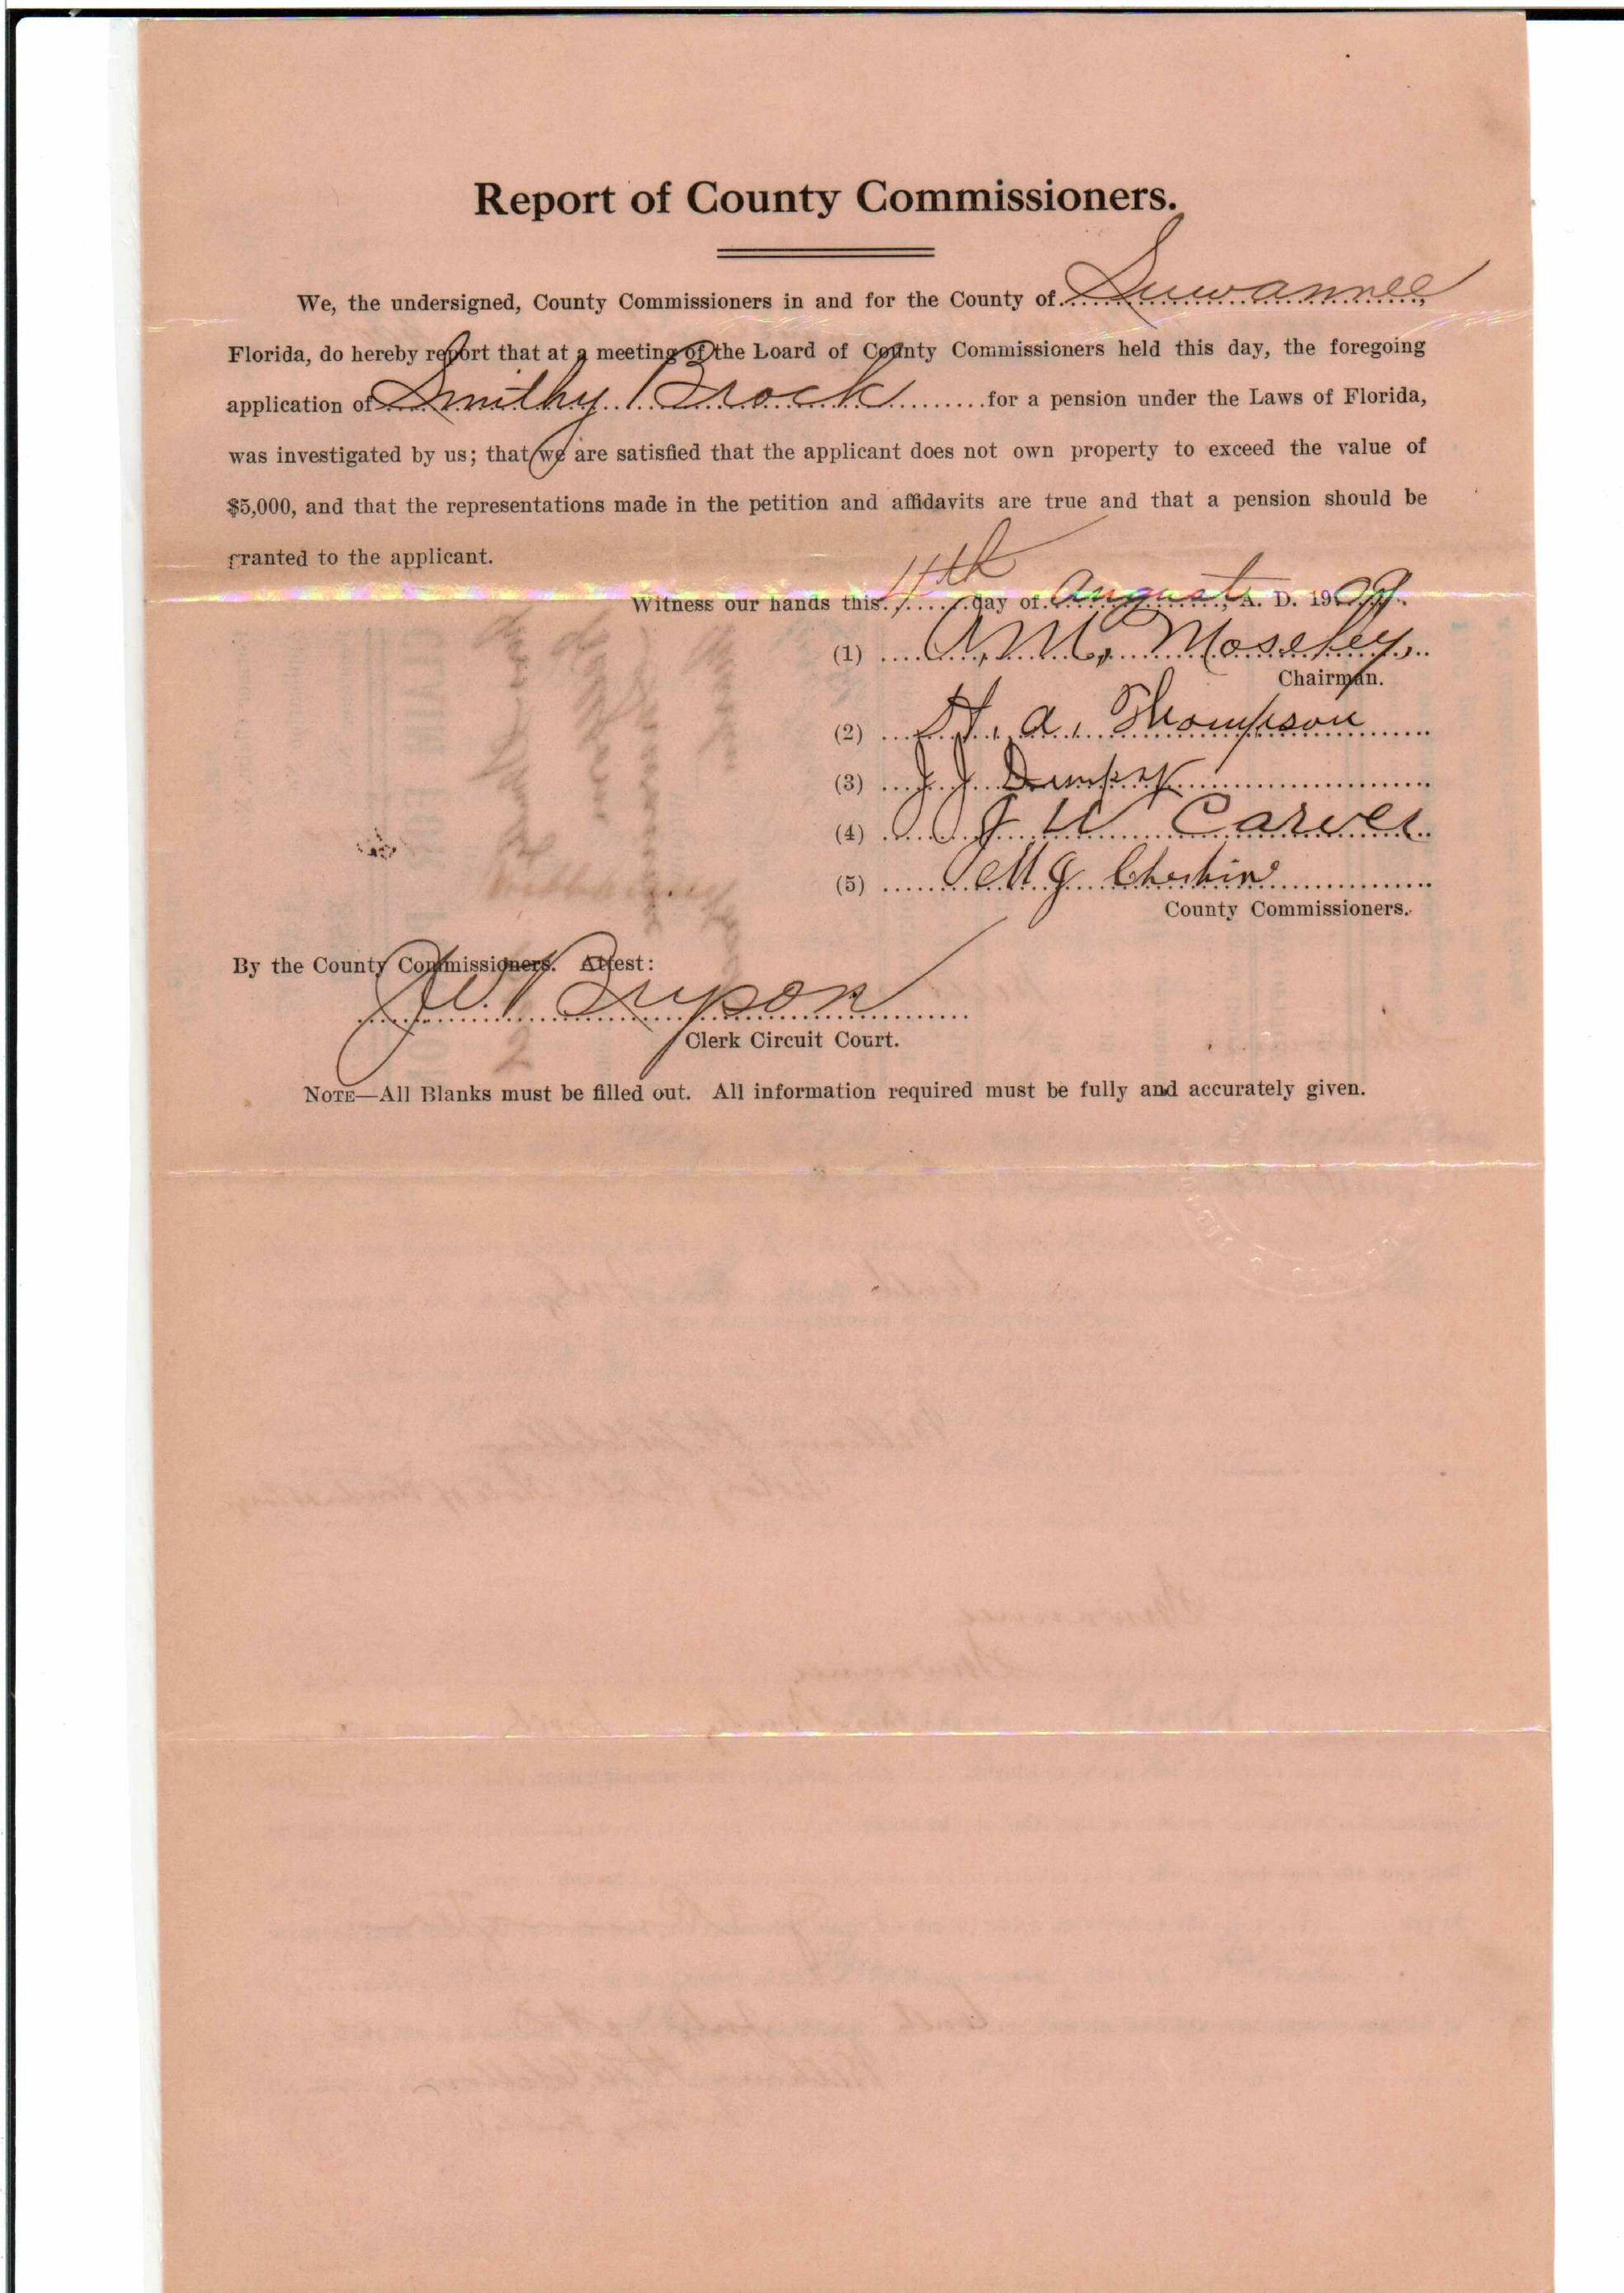 Report of County Commissioners.
We, the undersigned, County Commissioners in and for the County of Suwannee,
Florida, do hereby report that at a meeting of the Loard of County Commissioners held this day, the foregoing
application of Smithy Brock for a pension under the Laws of Florida,
was investigated by us; that we are satisfied that the applicant does not own property to exceed the value of
$5,000, and that the representations made in the petition and affidavits are true and that a pension should be
granted to the applicant.
Witness our hands this 4th day of August, A. D. 1909.
(1) A. M. Moseley,
Chairman.
(2) H. A. Thompson
(3) J J
(4) J W Carver
(5) M G
County Commissioners.
By the County Commissioners. Attest:
J W Bryson
Clerk Circuit Court.
NOTE—All Blanks must be filled out. All information required must be fully and accurately given.